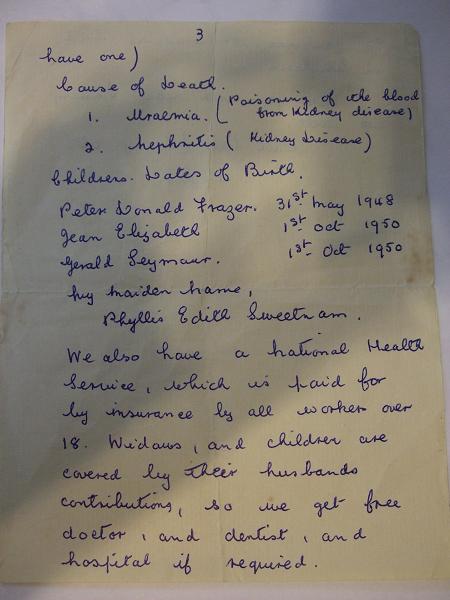 3
have one)
Cause of Death.
1. Uraemia. (Poisoning of the blood
from Kidney disease)
2. Nephritis (Kidney Disease)
Childrens. Dates of Birth.
Peter Donald Frazer. 31st May 1948
Jean Elizabeth 1st Oct 1950
Gerald Seymour. 1st Oct 1950
My Maiden Name,
Phyllis Edith Sweetnam.
We also have a National Health
Service, which is paid for
by insurance by all workers over
18. Widows, and children are
covered by their husbands
contributions, so we get free
doctor, and dentist, and
hospital if required.